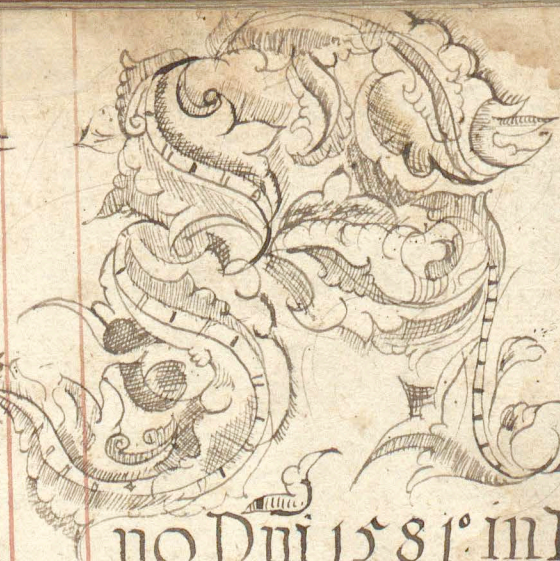 no Dnī 1581º in